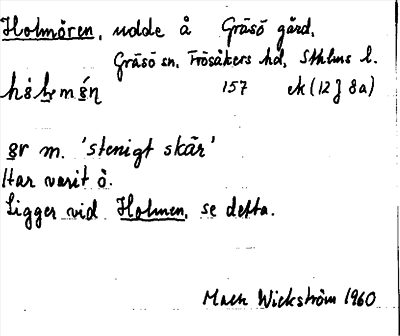 Holmören, udde å Gräsö gård,
Gräsö sn, Frösåkers hd, Sthlms l.
157 ek (12 J 8a)
ör m. 'stenigt skär'
Har varit ö.
Ligger vid Holmen, se detta.
Mats Wickström 1960